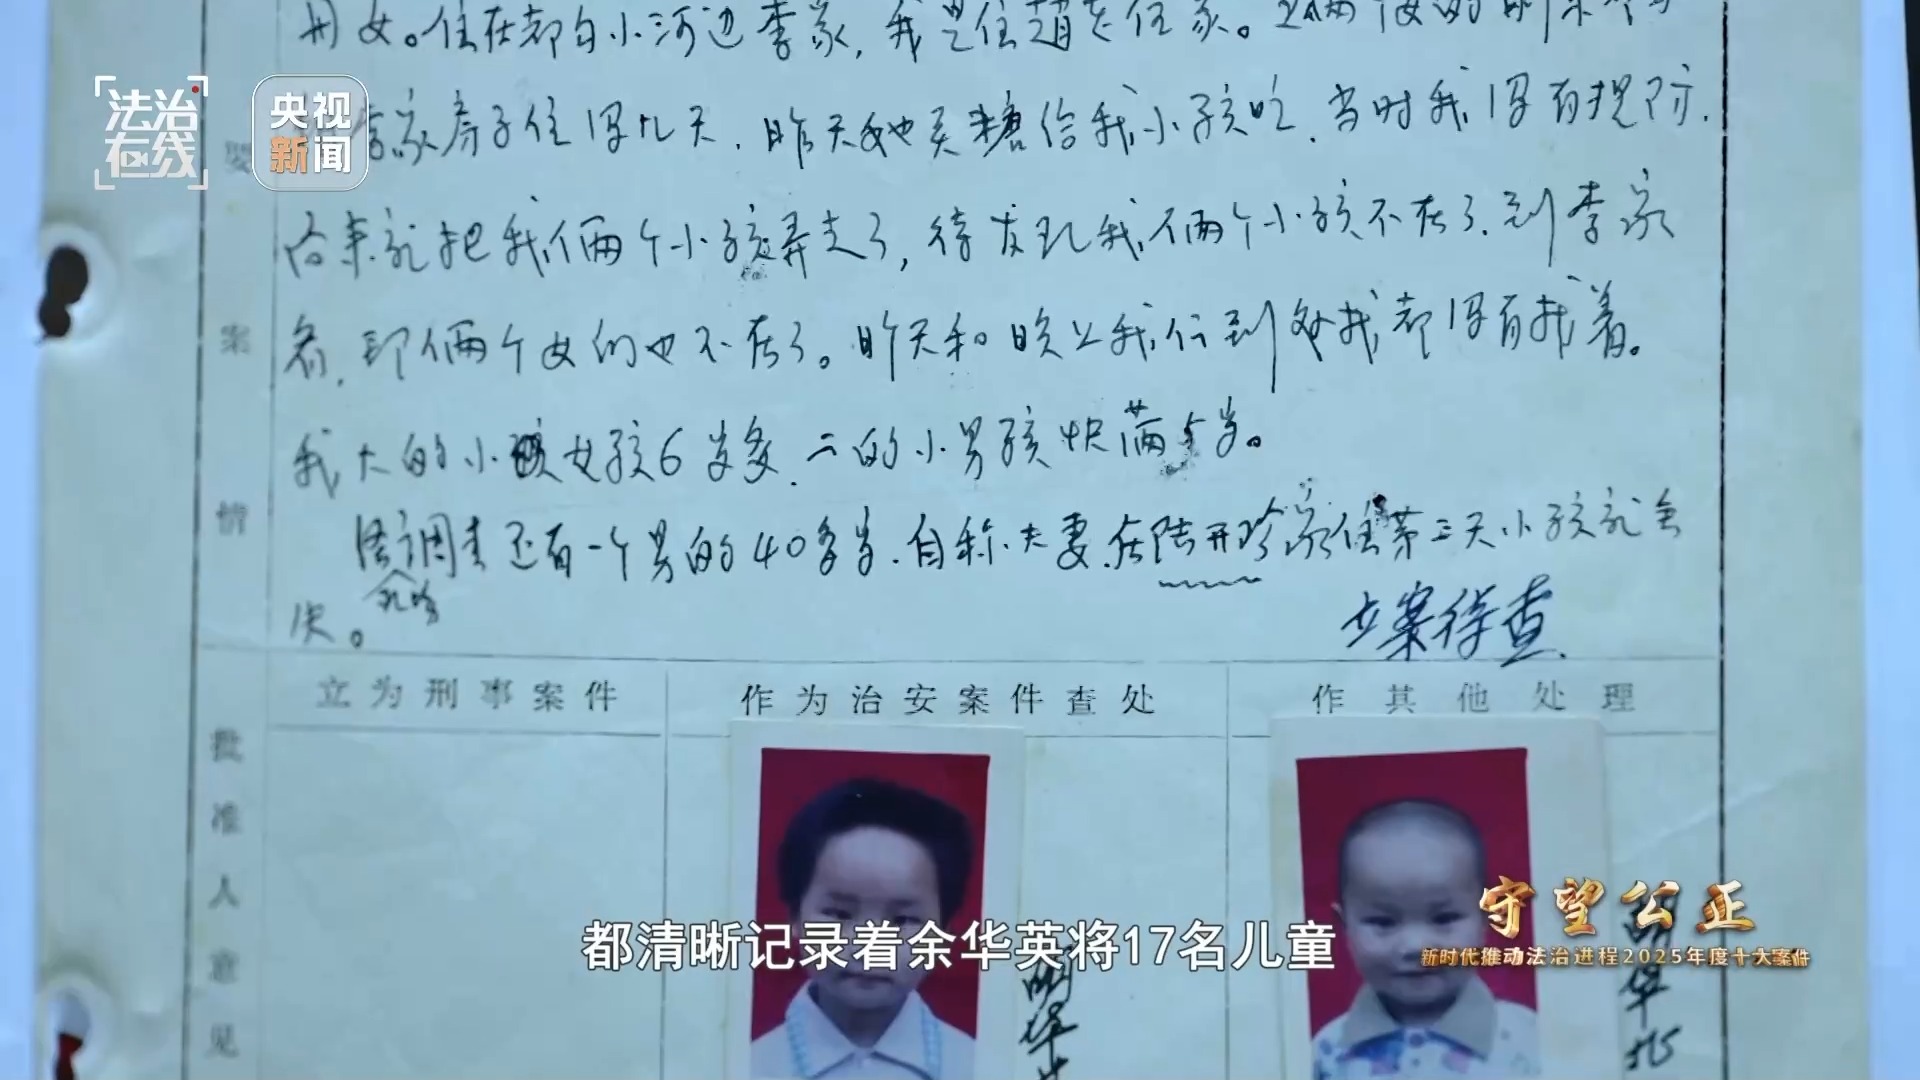 法治在线
央视新闻
丹女。住在都白小河边李家,我是住赵老伍家。
家房子住得几天.昨天她买糖给我小孩吃.当时我没有提防.
后来就把我们俩个小孩弄走了,待发现我们俩个小孩不在了.到李家
看,那俩个女的也不在了。昨天和晚上我们到处找都没有找着。
我大的小女孩6岁多.二的小男孩快满5岁。
经调查还有一个男的40多岁.自称夫妻.在陆开珍家住第三天小孩就会
失。
立案侦查
要案情
立为刑事案件
作为治安案件查处
作其他处理
批准人意见
守望公正
新时代推动法治进程2025年度十大案件
都清晰记录着余华英将17名儿童